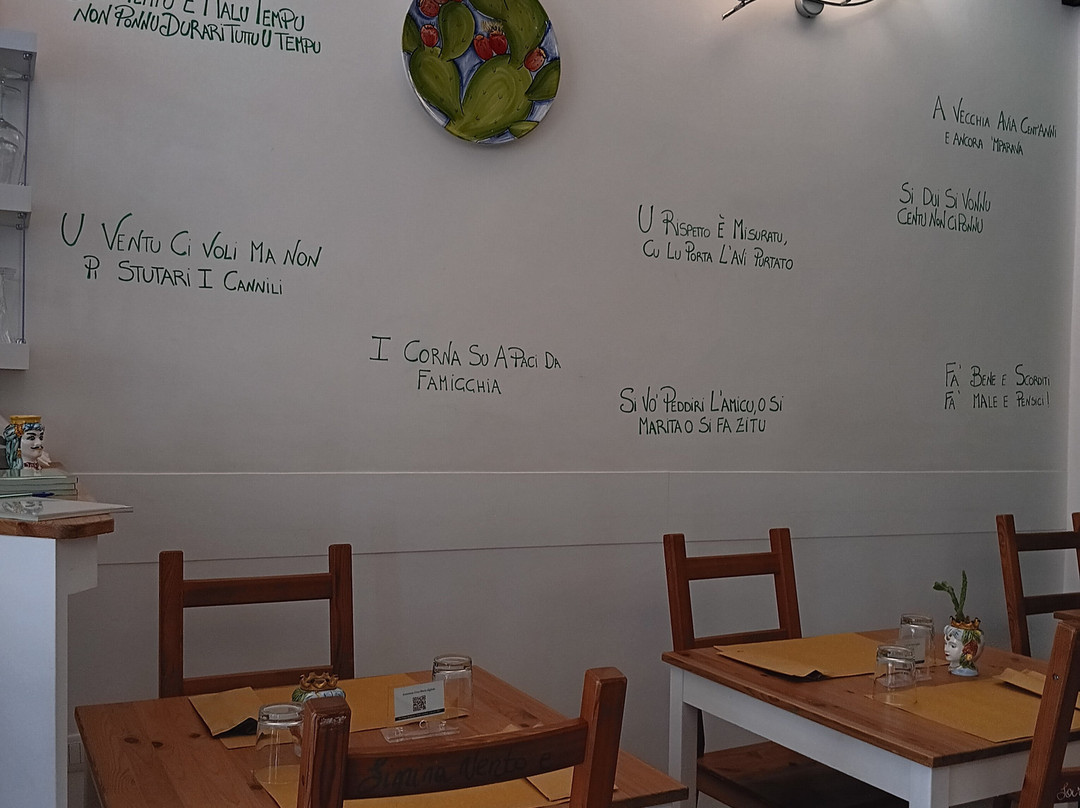 E MALU TEMPU
NON PONNU DURARI TUTTU U TEMPU
A VECCHIA AVIA CENT'ANNI
E ANCORA 'MPARAVA
SI DUI SI VONNU
CENTU NON CI PONNU
U VENTU CI VOLI MA NON
PI STUTARI I CANNILI
U RISPETTO È MISURATU,
CU LU PORTA L'AVI PURTATO
I CORNA SU A PACI DA
FAMIGGHIA
SI VO' PEDDIRI L'AMICU, O SI
MARITA O SI FA ZITU
FA' BENE E SCORDITI
FA' MALE E PENSICI!
Simina Vento e